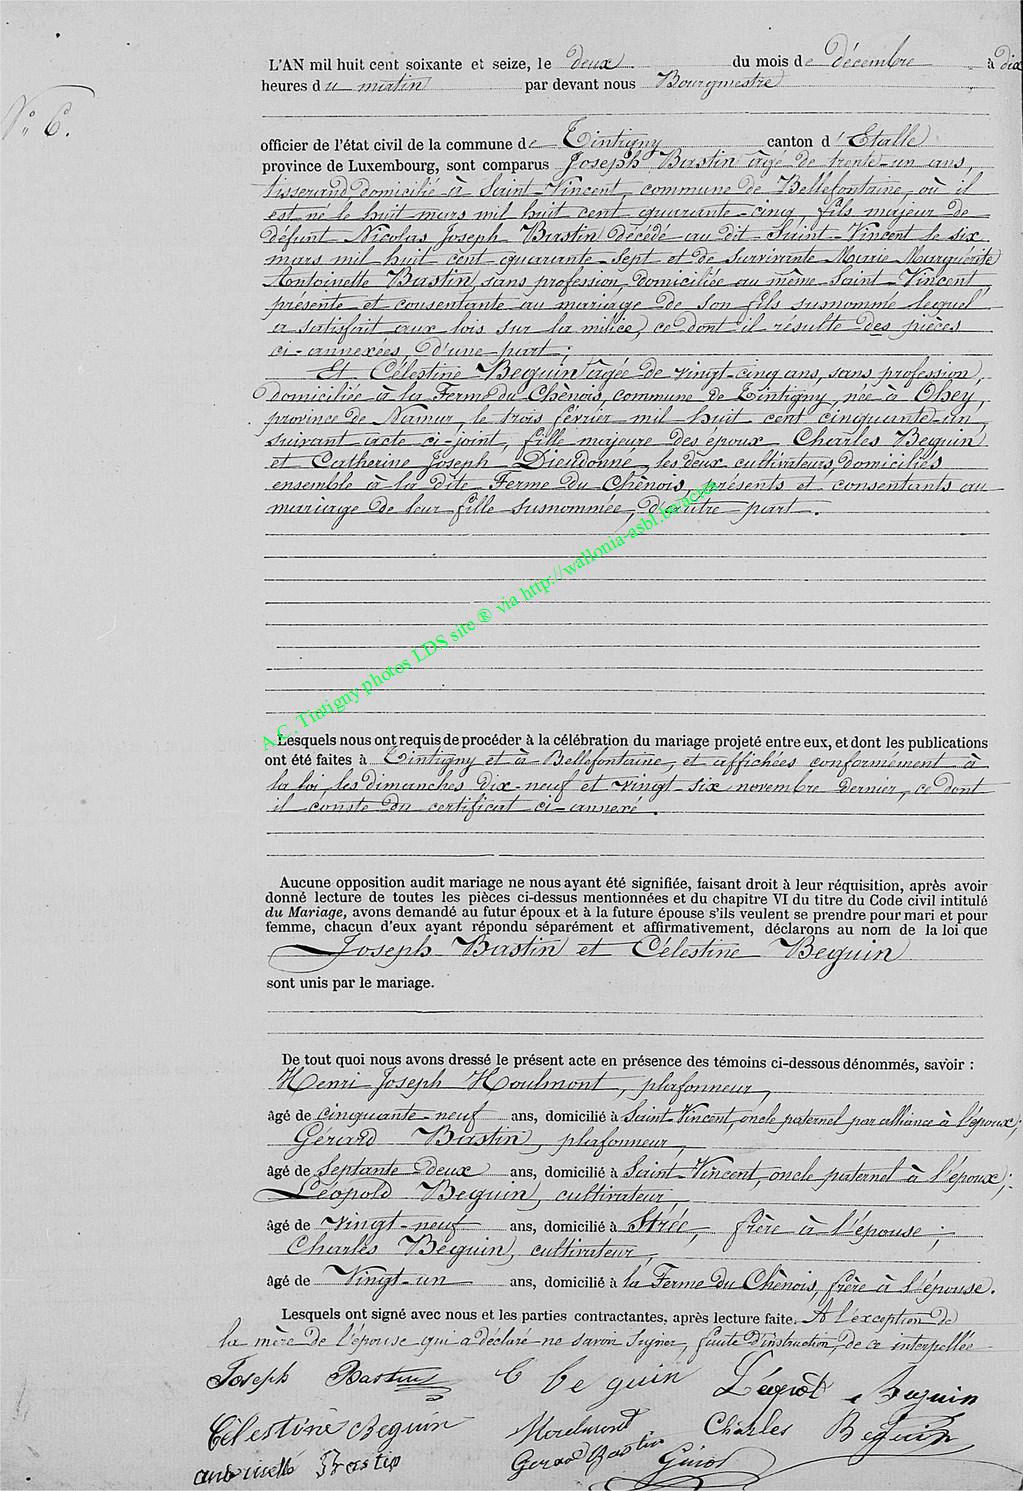 N° 6.
L'AN mil huit cent soixante et seize, le deux du mois de décembre à dix
heures du matin par devant nous Bourgmestre
officier de l'état civil de la commune de Tintigny canton d'Etalle
province de Luxembourg, sont comparus Joseph Bastin âgé de trente-un ans,
tisserand, domicilié à Saint-Vincent, commune de Bellefontaine, où il
est né le huit mars mil huit cent quarante-cinq, fils majeur de
défunt Nicolas Joseph Bastin décédé au dit Saint-Vincent le six
mars mil huit cent quarante-sept et de survivante Marie Marguérite
Antoinette Bastin, sans profession, domiciliée au même Saint-Vincent,
présente et consentante au mariage de son fils susnommé lequel
a satisfait aux lois sur la milice, ce dont il résulte des pièces
ci-annexées, d'une part;
Et Célestine Beguin âgée de vingt-cinq ans, sans profession,
domiciliée à la Ferme du Chènois, commune de Tintigny, née à Ohey,
province de Namur, le trois février mil huit cent cinquante-un,
suivant acte ci-joint, fille majeure des époux Charles Beguin
et Catherine Joseph Dieudonné, les deux cultivateurs, domiciliés
ensemble à la dite Ferme du Chènois, présents et consentants au
mariage de leur fille susnommée, d'autre part.
A.C. Tintigny photos LDS site ® via http://wallonia-asbl.be/actes
Lesquels nous ont requis de procéder à la célébration du mariage projeté entre eux, et dont les publications
ont été faites à Tintigny et à Bellefontaine, et affichées conformément à
la loi, les dimanches dix-neuf et vingt-six novembre dernier, ce dont
il conste du certificat ci-annexé.
Aucune opposition audit mariage ne nous ayant été signifiée, faisant droit à leur réquisition, après avoir
donné lecture de toutes les pièces ci-dessus mentionnées et du chapitre VI du titre du Code civil intitulé
du Mariage, avons demandé au futur époux et à la future épouse s'ils veulent se prendre pour mari et pour
femme, chacun d'eux ayant répondu séparément et affirmativement, déclarons au nom de la loi que
Joseph Bastin et Célestine Beguin
sont unis par le mariage.
De tout quoi nous avons dressé le présent acte en présence des témoins ci-dessous dénommés, savoir :
Henri Joseph Houlmont, plafonneur,
âgé de cinquante-neuf ans, domicilié à Saint-Vincent, oncle paternel par alliance à l'époux;
Gérard Bastin, plafonneur,
âgé de septante-deux ans, domicilié à Saint-Vincent, oncle paternel à l'époux;
Léopold Beguin, cultivateur,
âgé de vingt-neuf ans, domicilié à Strée, frère à l'épouse;
Charles Beguin, cultivateur,
âgé de Vingt-un ans, domicilié à la Ferme du Chènois, frère à l'épouse.
Lesquels ont signé avec nous et les parties contractantes, après lecture faite. A l'exception de
la mère de l'épouse qui a déclaré ne savoir signer, faute d'instruction, de ce interpellée
Joseph Bastin C beguin Léopold Beguin
Célestine Beguin Houlmont Charles Beguin
antoinette Bastin Gerard Bastin